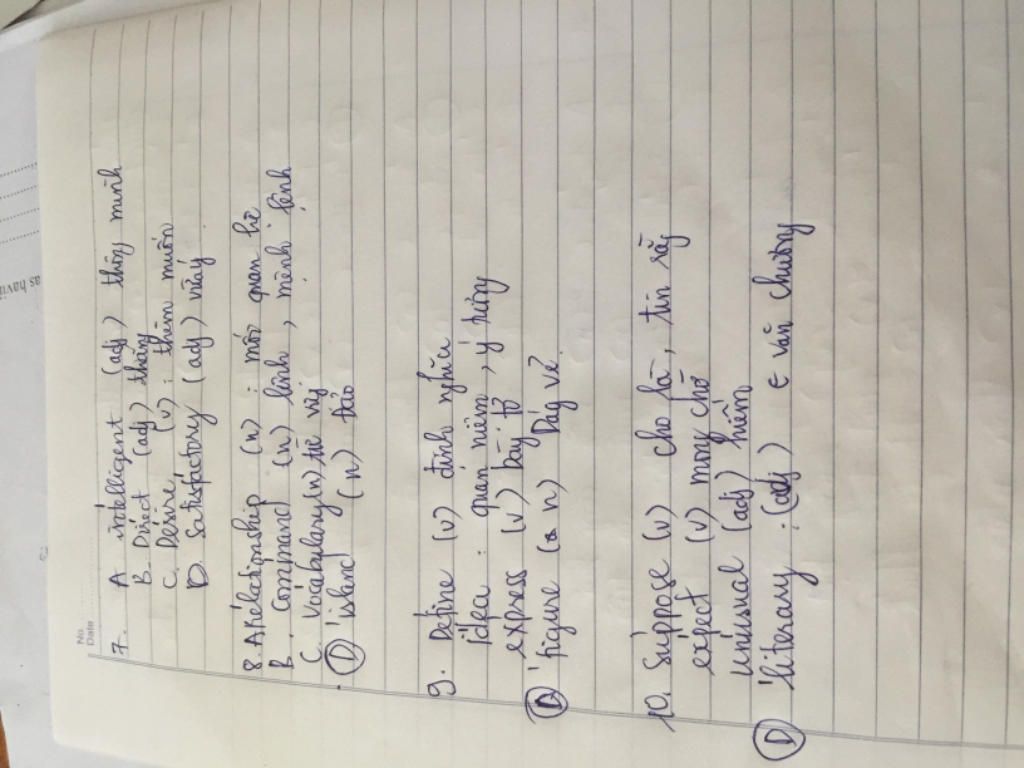 No.
Date
7. A intelligent (adj) thông minh
B. Direct (adj) thẳng
C. Desire (v): thèm muốn
D. Satisfactory (adj)
8. A Relationship (n): mối quan hê
B. Command (n) lênh, mệnh lệnh
C. Vocabulary (n) từ vựng
D 'island (n) đảo
9. Define (v) định nghĩa
idea: quan niệm, ý tưởng
express (v) bày tỏ
D 'figure (n) Dáng vẻ
10. Suppose (v) cho là, tin rằng
expect (v) mong chờ
unusual (adj) hiếm
D 'literary (adj) văn chương
as havi